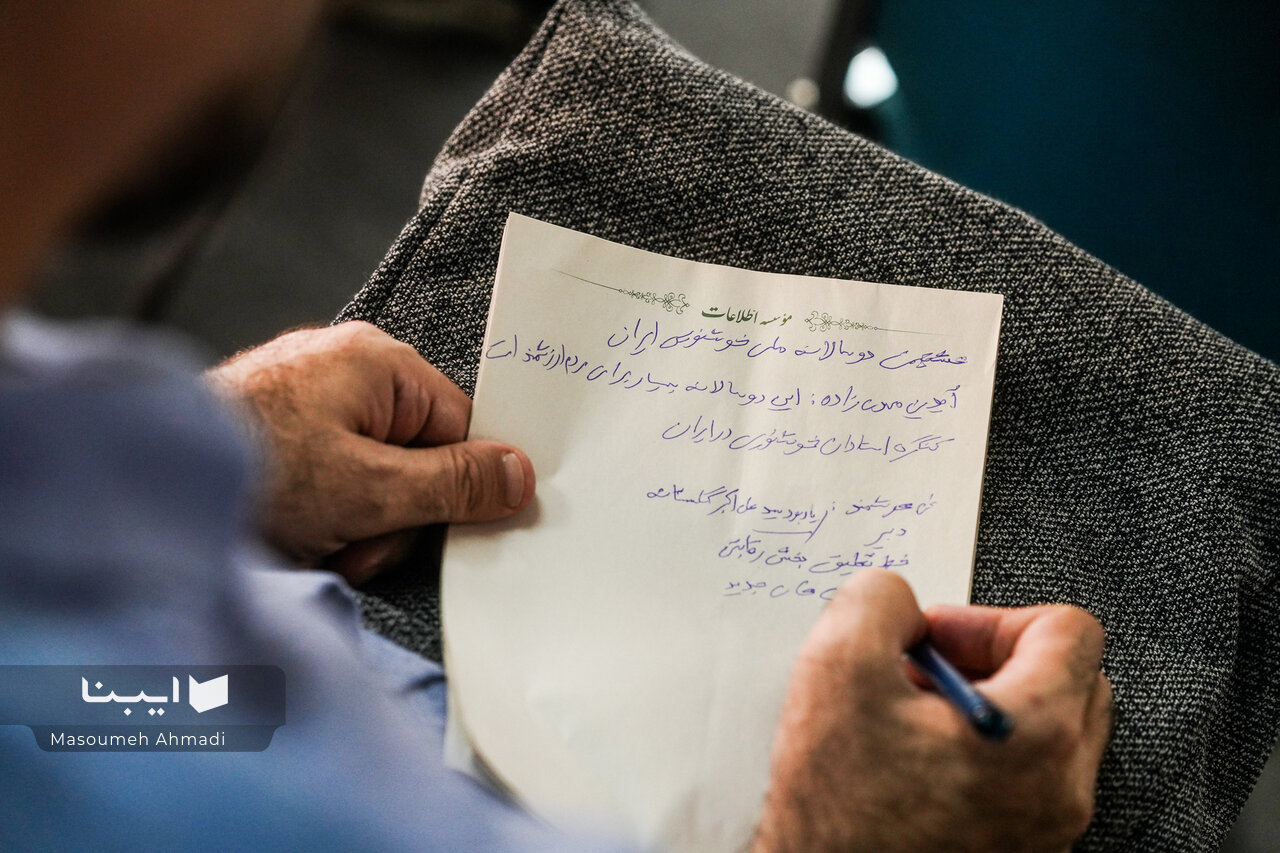 مؤسسه اطلاعات
ششمین دوسالانه ملی خوشنویسی ایران
آیدین مهدی زاده : این دوسالانه بسیار برای مردم ارزشمند است
کنگره استادان خوشنویسی در ایران
: یادبود سید علی اکبر گلستانه
دبیر
خط تعلیق بخش رقابتی
های جدید
ایبنا
Masoumeh Ahmadi